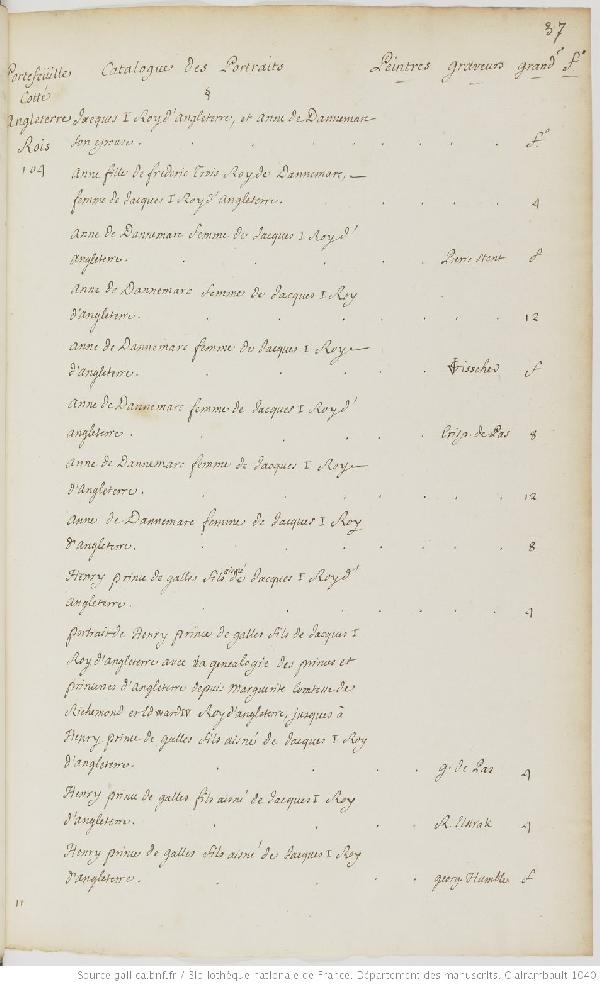 37
Portefeuille Catalogue des Portraits Peintres graveurs grand.r f.o
Cotté
Angleterre Jacques I Roy d'Angleterre, et Anne de Dannemarc
Rois son epouse. f.o
104 Anne fille de frederic Trois Roy de Dannemarc,
femme de Jacques I Roy d'Angleterre. 4
Anne de Dannemarc femme de Jacques I Roy d'
Angleterre. Pierre Stent
Anne de Dannemarc femme de Jacques I Roy
d'Angleterre. 12
Anne de Dannemarc femme de Jacques I Roy
d'Angleterre. Visscher f
Anne de Dannemarc femme de Jacques I Roy d'
Angleterre. Crisp. de Pas 8
Anne de Dannemarc femme de Jacques I Roy
d'Angleterre. 12
Anne de Dannemarc femme de Jacques I Roy
d'Angleterre. 8
Henry prince de galles fils aisné de Jacques I Roy d'
Angleterre. 4
portrait de Henry prince de galles fils de Jacques I
Roy d'angleterre avec la genealogie des princes et
princesses d'Angleterre depuis Marguerite Comtesse de
Richemond et Edward IV Roy d'angleterre, jusques à
Henry prince de galles fils aisné de Jacques I Roy
d'angleterre. g. de Pas 4
Henry prince de galles fils aisné de Jacques I Roy
d'Angleterre. R. Elstrak 4
Henry prince de galles fils aisné de Jacques I Roy
d'angleterre. georg Humble f
Source gallica.bnf.fr / Bibliothèque nationale de France. Département des manuscrits. Clairambault 1040